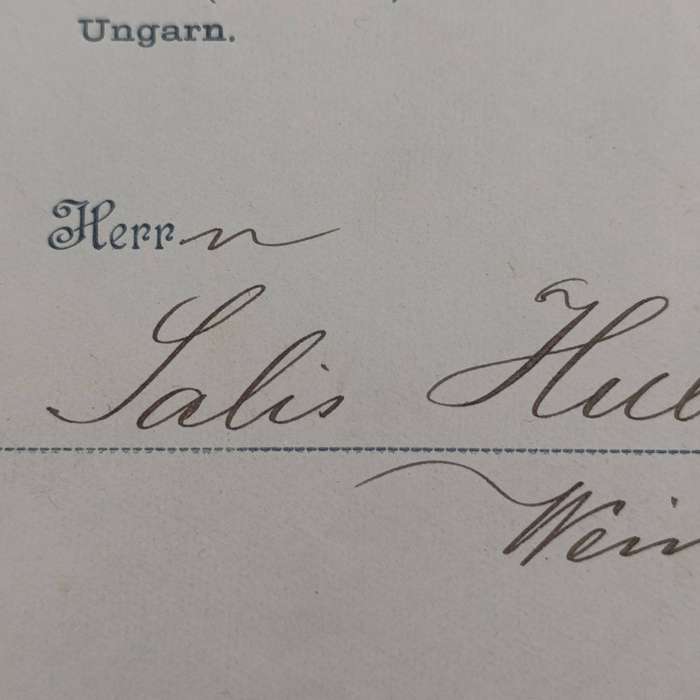 Ungarn.
Herrn
Salis Hue
Wein